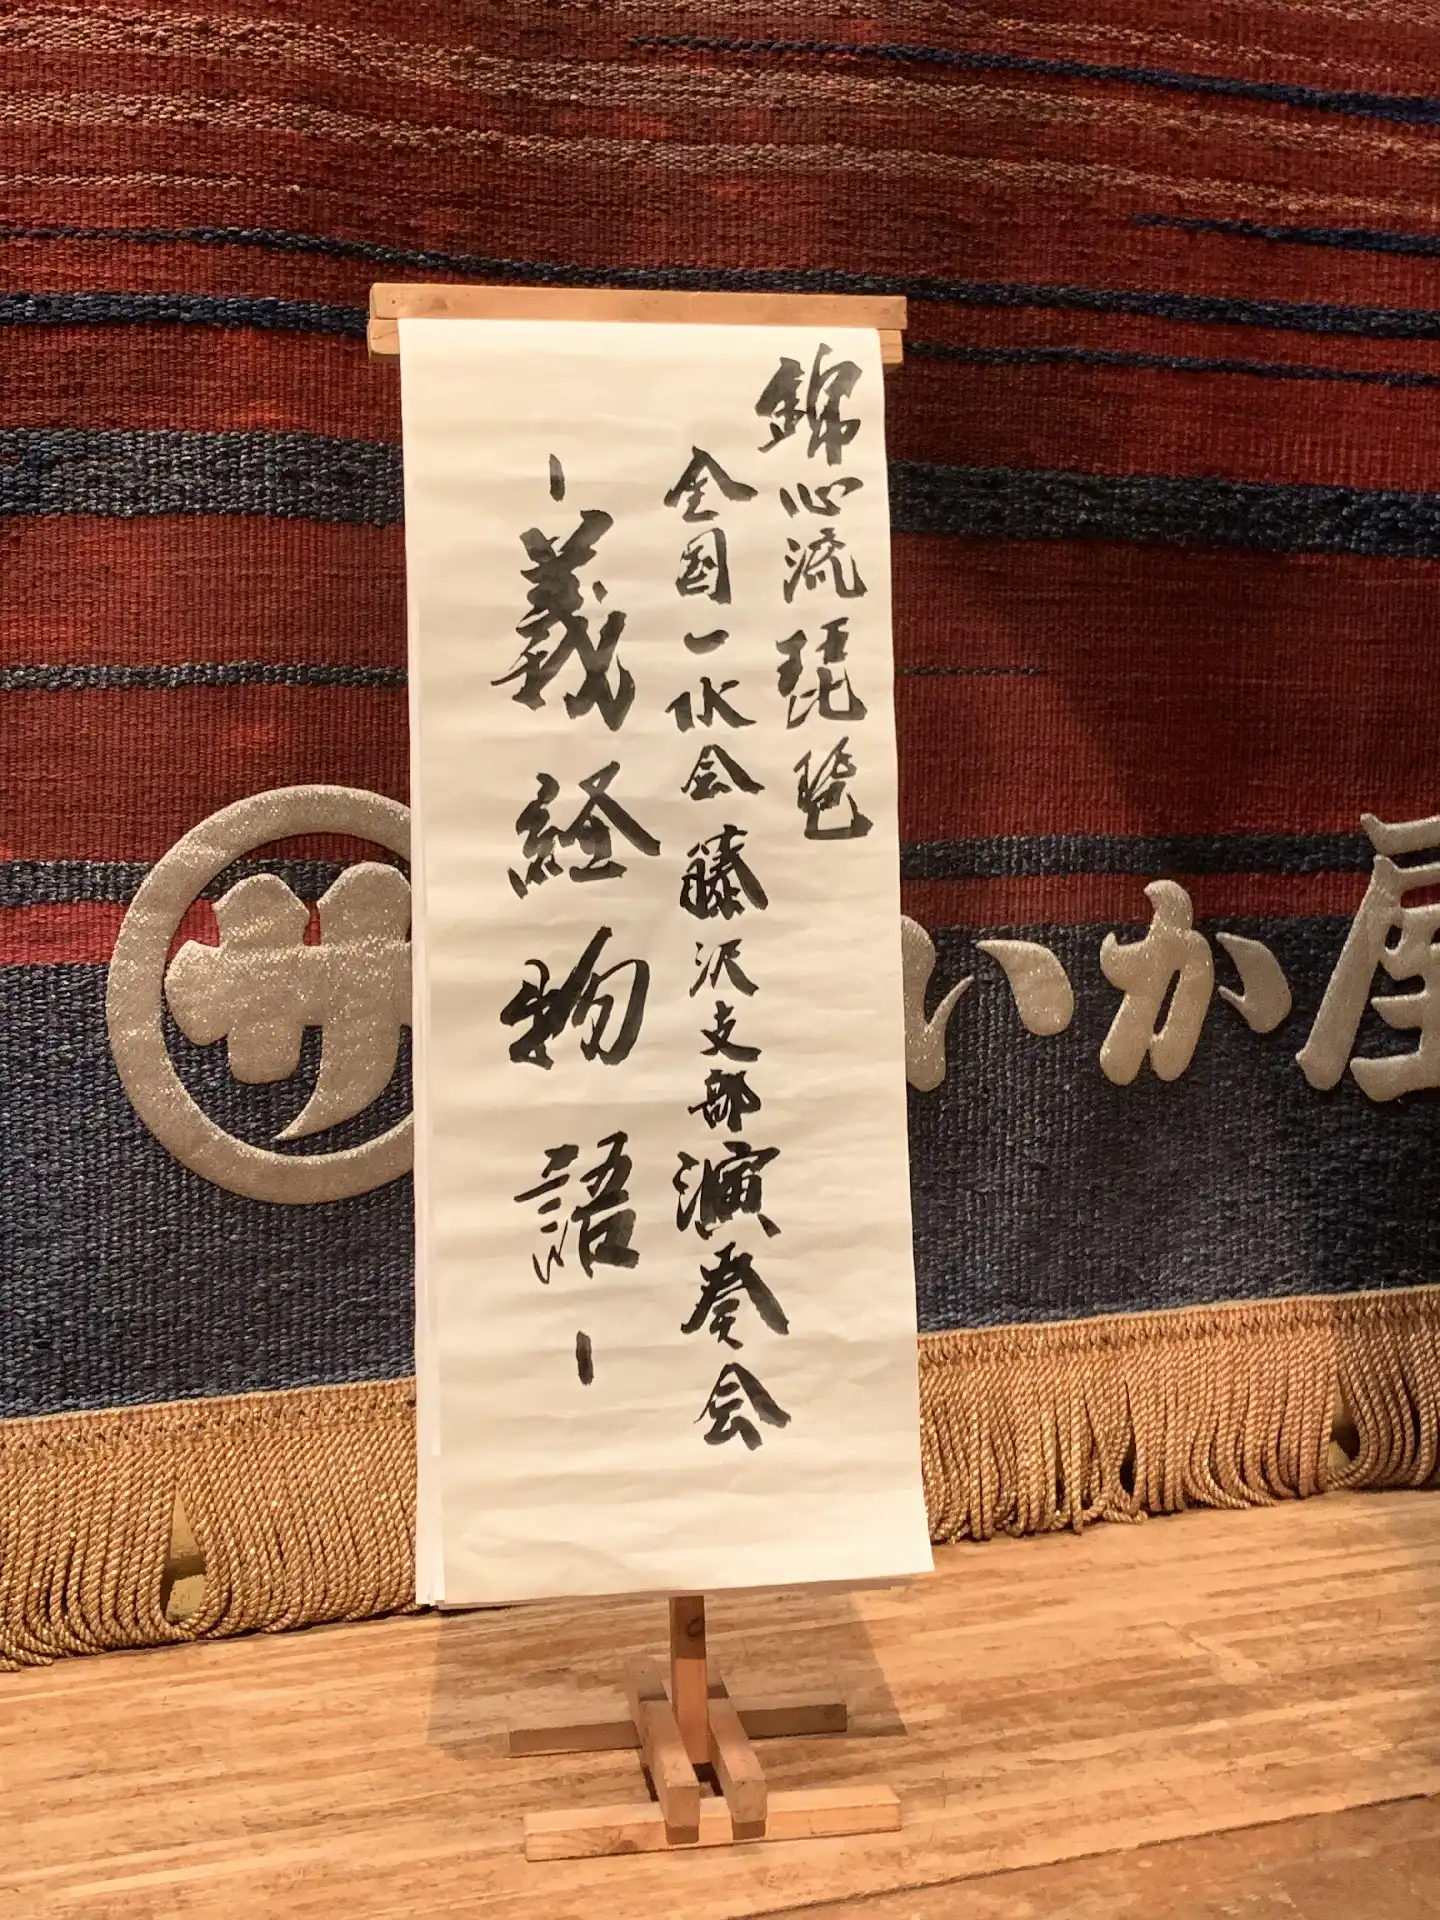 錦心流琵琶
全国一水会藤沢支部演奏会
－義経物語－
サ
いか屋